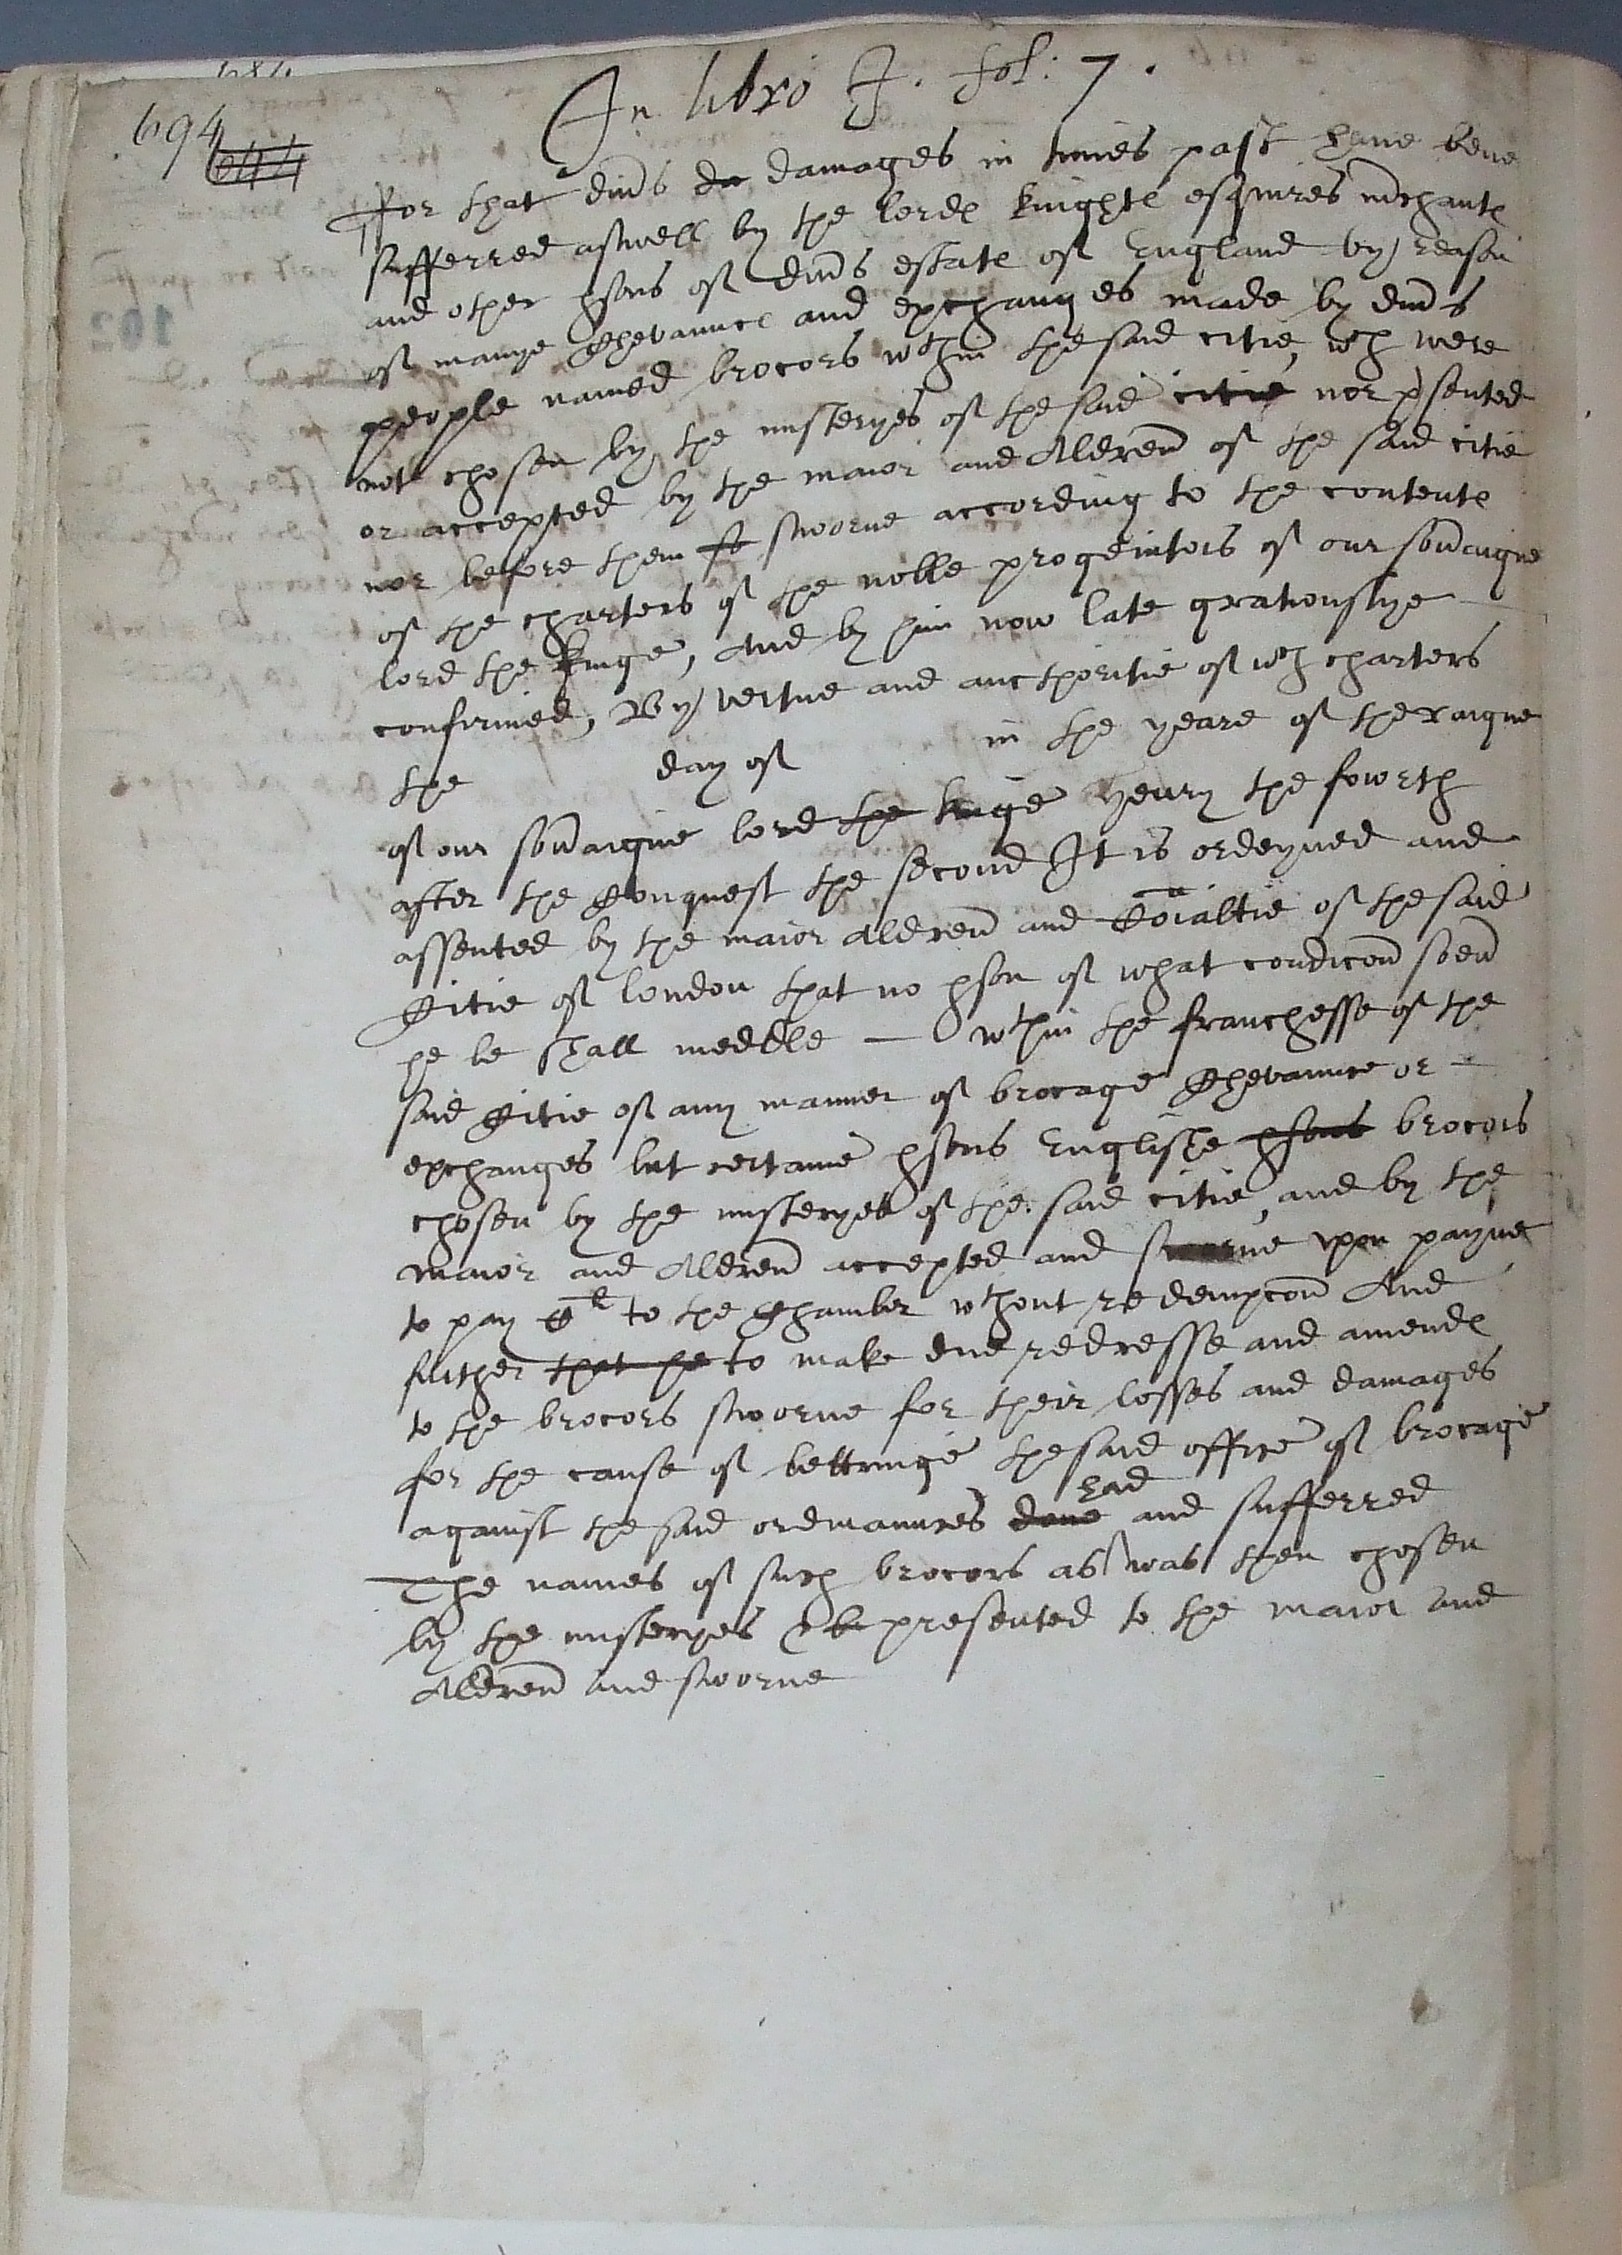 In libro I. fol: 7.
694
644
For that diu's da damages in times past have bene
sufferred aswell by the lordes knightes esquires m'chantes
and other p'sons of diu's estates of England by reason
of manye Chevaunces and exchanges made by diu's
people named brocors wthin the said citie, wch were
not chosen by the misteryes of the said citie nor p'sented
or accepted by the maior and Aldren of the said citie
nor before them so sworne according to the contentes
of the charters of the noble progenitors of our sou'aigne
lord the kinge, And by him now late gratiouslye
confirmed, By vertue and aucthoritie of wch charters
the day of in the yeare of the raigne
of our sou'aigne lord the kinge Henry the fowrth
after the Conquest the second It is ordeyned and
assented by the maior Aldren and Coialtie of the said
Citie of london that no p'son of what condicon soeu'
he be shall medle — wthin the franchesse of the
said Citie of any manner of brocage Chevaunce or
exchanges but certaine p'sons Englishe p'sons brocors
chosen by the misteryes of the said citie, and by the
maior and Aldren accepted and sworne upon payne
to pay Cl to the Chamber wthout redempcon And
further that he to make due redresse and amendes
to the brocors sworne for their losses and damages
for the cause of the said office of brocage
against the said ordinaunces done had and sufferred
The names of such brocors as was then chosen
by the misteryes & b presented to the maior and
Aldren and sworne